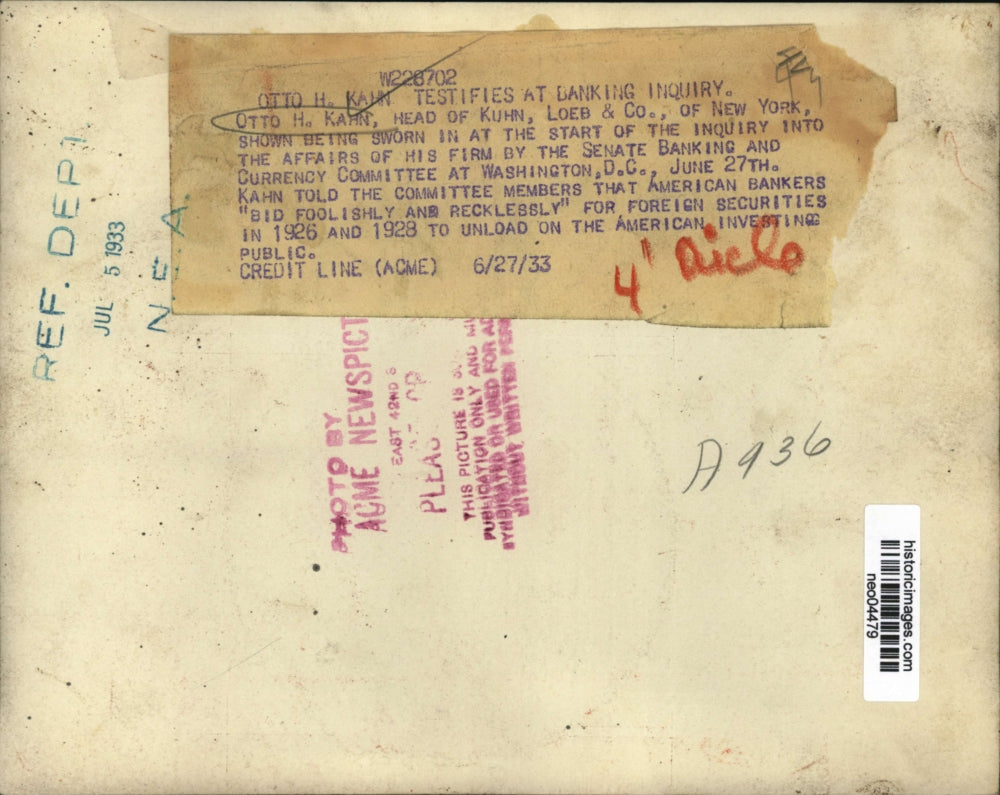 W228702
OTTO H. KAHN TESTIFIES AT BANKING INQUIRY.
OTTO H. KAHN, HEAD OF KUHN, LOEB & CO., OF NEW YORK,
SHOWN BEING SWORN IN AT THE START OF THE INQUIRY INTO
THE AFFAIRS OF HIS FIRM BY THE SENATE BANKING AND
CURRENCY COMMITTEE AT WASHINGTON,D.C., JUNE 27TH.
KAHN TOLD THE COMMITTEE MEMBERS THAT AMERICAN BANKERS
"BID FOOLISHLY AND RECKLESSLY" FOR FOREIGN SECURITIES
IN 1926 AND 1928 TO UNLOAD ON THE AMERICAN INVESTING
PUBLIC.
CREDIT LINE (ACME) 6/27/33
4"
REF. DEPT
JUL 5 1933
N E A.
PHOTO BY
ACME NEWSPICT
EAST 42ND S
THIS PICTURE IS
PUBLICATION ONLY AND
SYNDICATED OR USED FOR
WITHOUT WRITTEN
A936
historicimages.com
neo04479